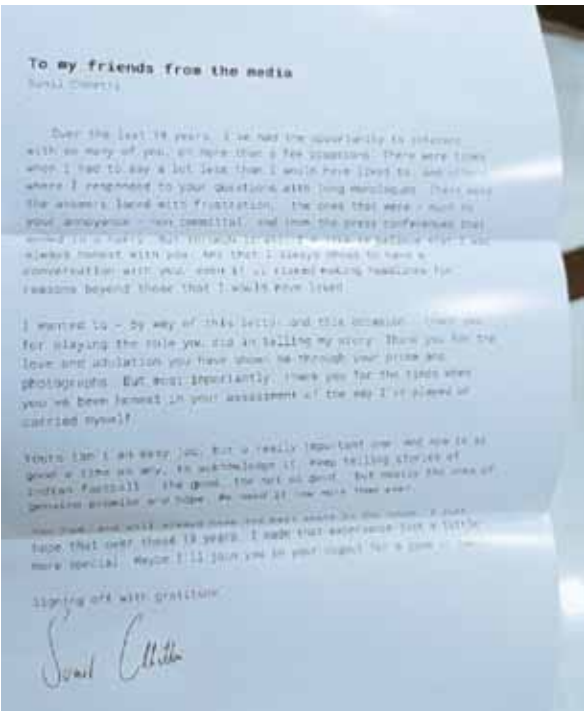 To my friends from the media
Sunil Chhetri
Over the last 19 years, I've had the opportunity to interact
with so many of you, on more than a few occasions. There were times
when I had to say a lot less than I would have liked to, and others
where I responded to your questions with long monologues. There were
the answers laced with frustration, the ones that were - much to
your annoyance - non committal, and then the press conferences that
ended in a hurry. But through it all, I
always honest with you. And that I always chose to have a
conversation with you, even if it risked making headlines for
reasons beyond those that I would have liked.
I wanted to - by way of this letter and this occasion - thank you
for playing the role you did in telling my story. Thank you for the
love and adulation you have shown me through your prose and
photographs. But most importantly, thank you for the times when
you've been honest in your assessment of the way I've played or
carried myself.
Yours isn't an easy job, but a really important one. And now is as
good a time as any, to acknowledge it. Keep telling stories of
Indian football - the good, the not so good, but mostly the ones of
genuine promise and hope. We need it now more than ever.
You have, and will always have the best seats in the house. I just
hope that over these 19 years, I made that experience just a little
more special. Maybe I'll join you in your
Signing off with gratitude
Sunil Chhetri